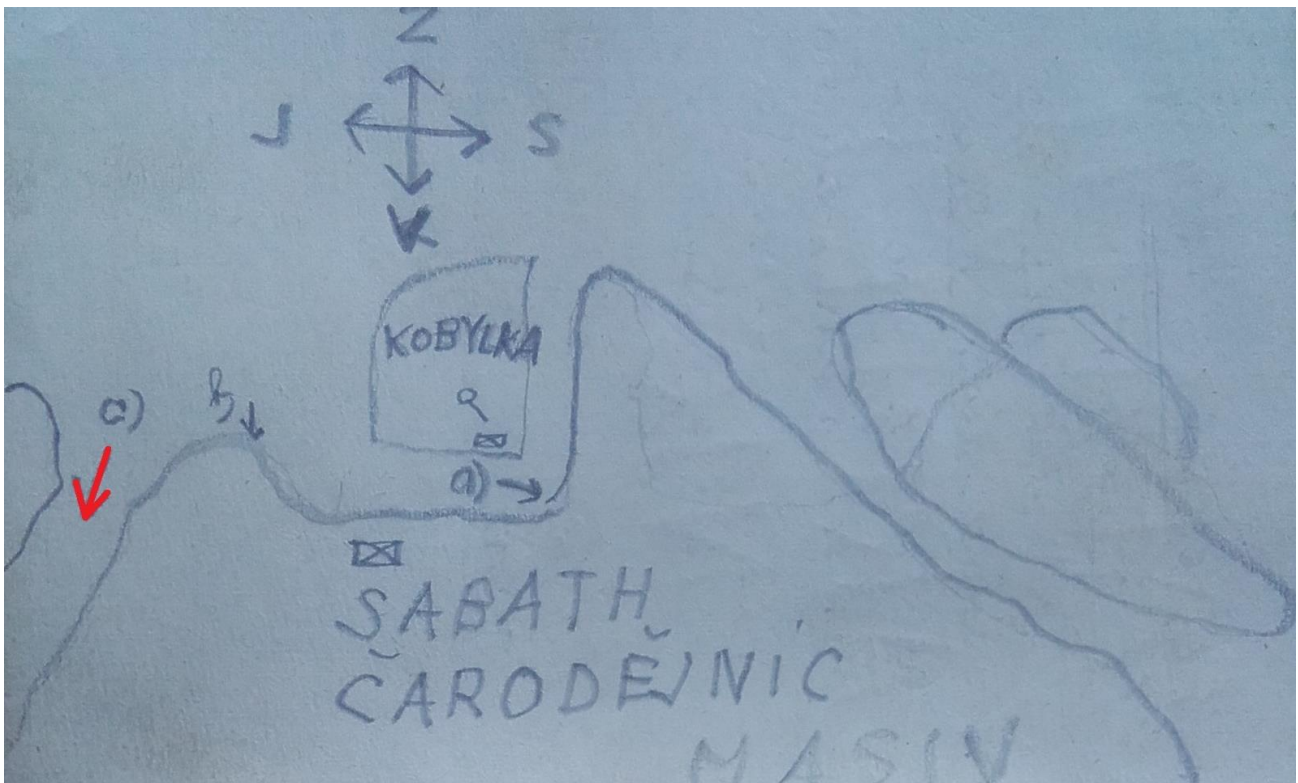 Z
J S
V
KOBYLKA
c) b)
a)
SABATH
ČARODĚJNÍC
MASIV